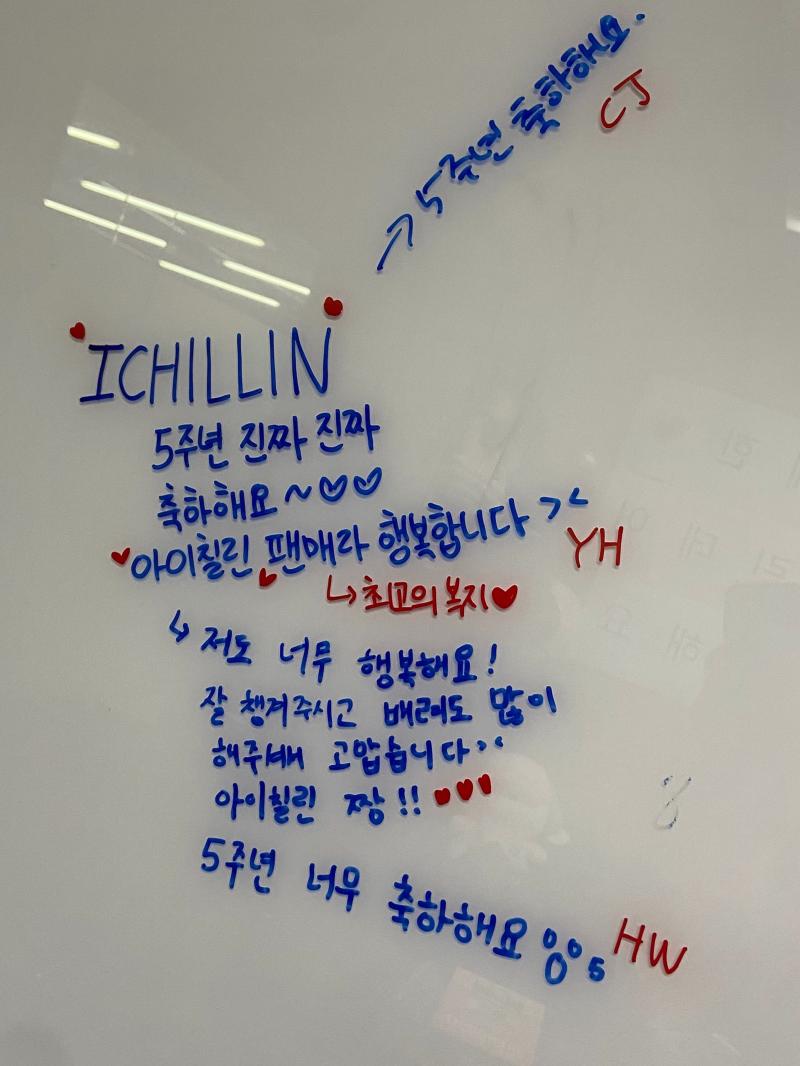 → 5주년 축하해요.
CJ
ICHILLIN
5주년 진짜 진짜
축하해요~♡♡
♥아이칠린♥ 팬매라 행복합니다 ><
YH
↳최고의 복지♥
↳ 저도 너무 행복해요!
잘 챙겨주시고 배려도 많이
해주셔서 고맙습니다><
아이칠린 짱!! ♥♥♥
5주년 너무 축하해요
HW